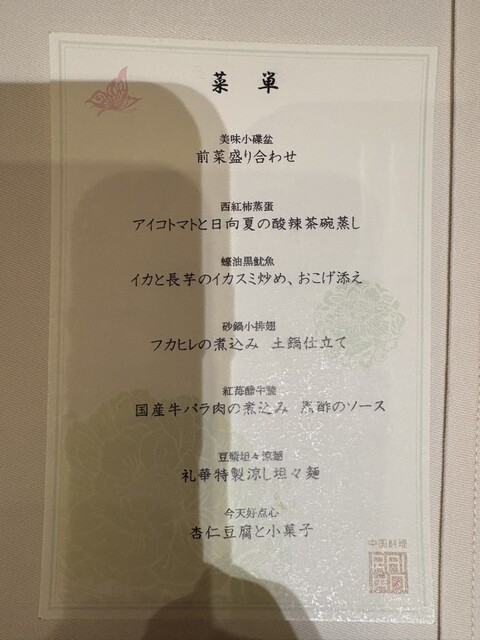 菜単
美味小碟盆
前菜盛り合わせ
西紅柿蒸蛋
アイコトマトと日向夏の酸辣茶碗蒸し
蠔油黒魷魚
イカと長芋のイカスミ炒め、おこげ添え
砂鍋小排翅
フカヒレの煮込み 土鍋仕立て
紅莓醋牛腩
国産牛バラ肉の煮込み 黒酢のソース
豆漿坦々涼麺
礼華特製涼し坦々麺
今天好点心
杏仁豆腐と小菓子
中国料理